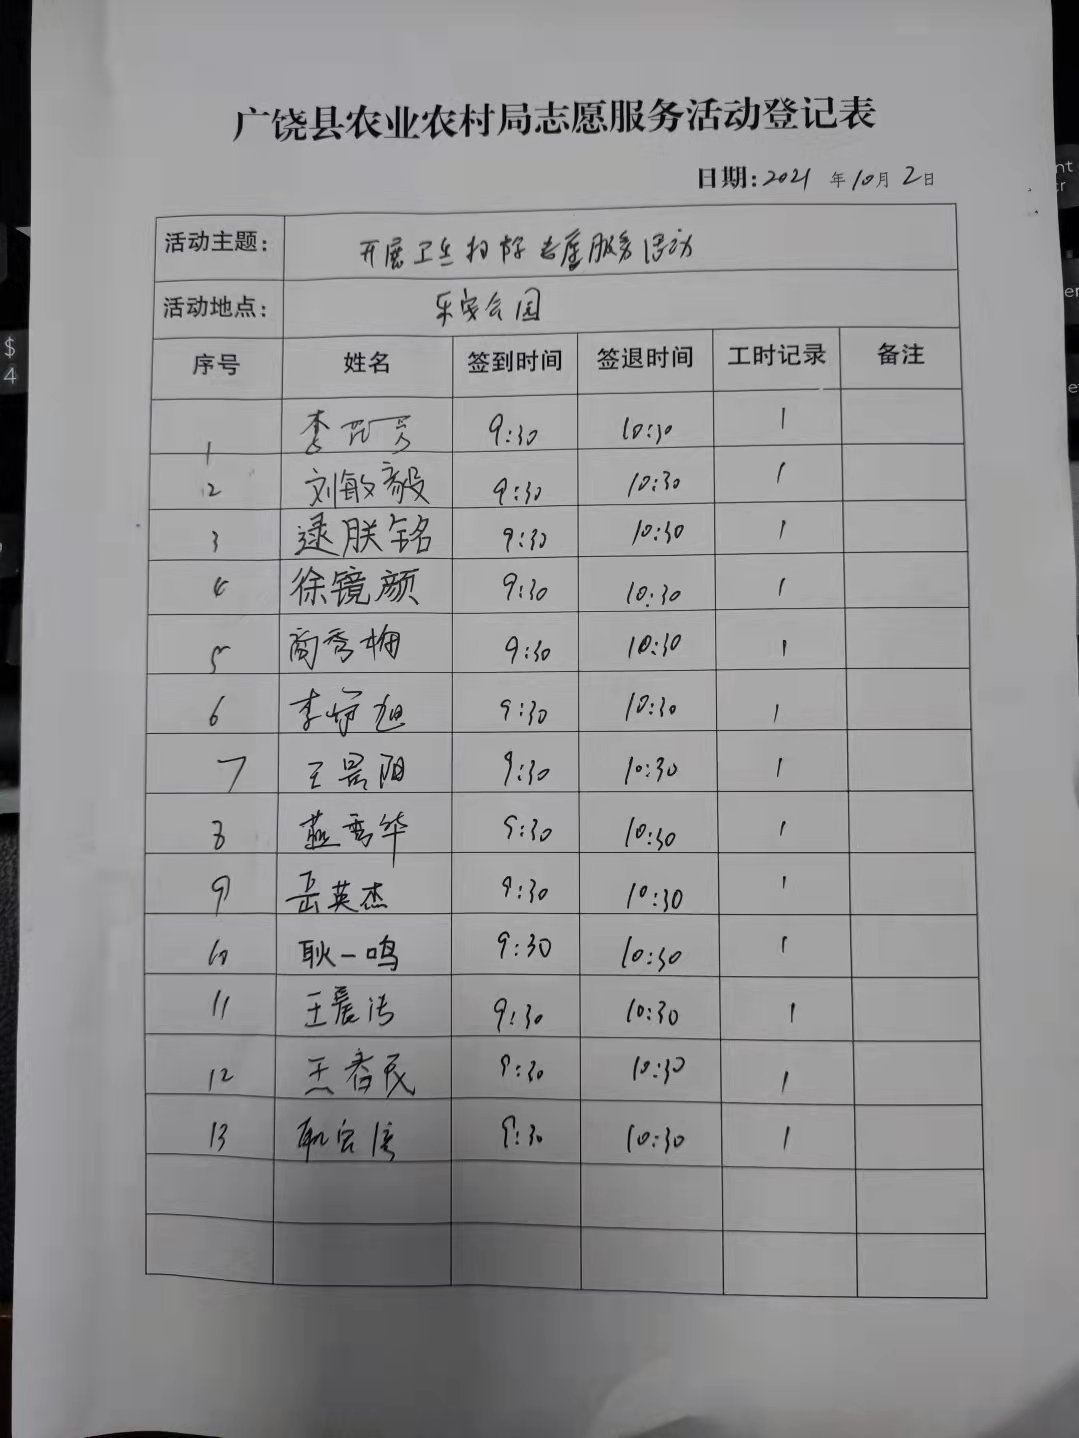 广饶县农业农村局志愿服务活动登记表
日期:2021 年10月2日
活动主题: 开展卫生扫除志愿服务活动
活动地点: 乐安公园
序号 姓名 签到时间 签退时间 工时记录 备注
1 李 9:30 10:30 1
2 刘敏毅 9:30 10:30 1
3 逯朕铭 9:30 10:30 1
4 徐镜颜 9:30 10:30 1
5 商秀梅 9:30 10:30 1
6 李 旭 9:30 10:30 1
7 王景阳 9:30 10:30 1
8 燕秀华 9:30 10:30 1
9 岳英杰 9:30 10:30 1
10 耿一鸣 9:30 10:30 1
11 王晨洁 9:30 10:30 1
12 王春民 9:30 10:30 1
13 宏 9:30 10:30 1
$
4